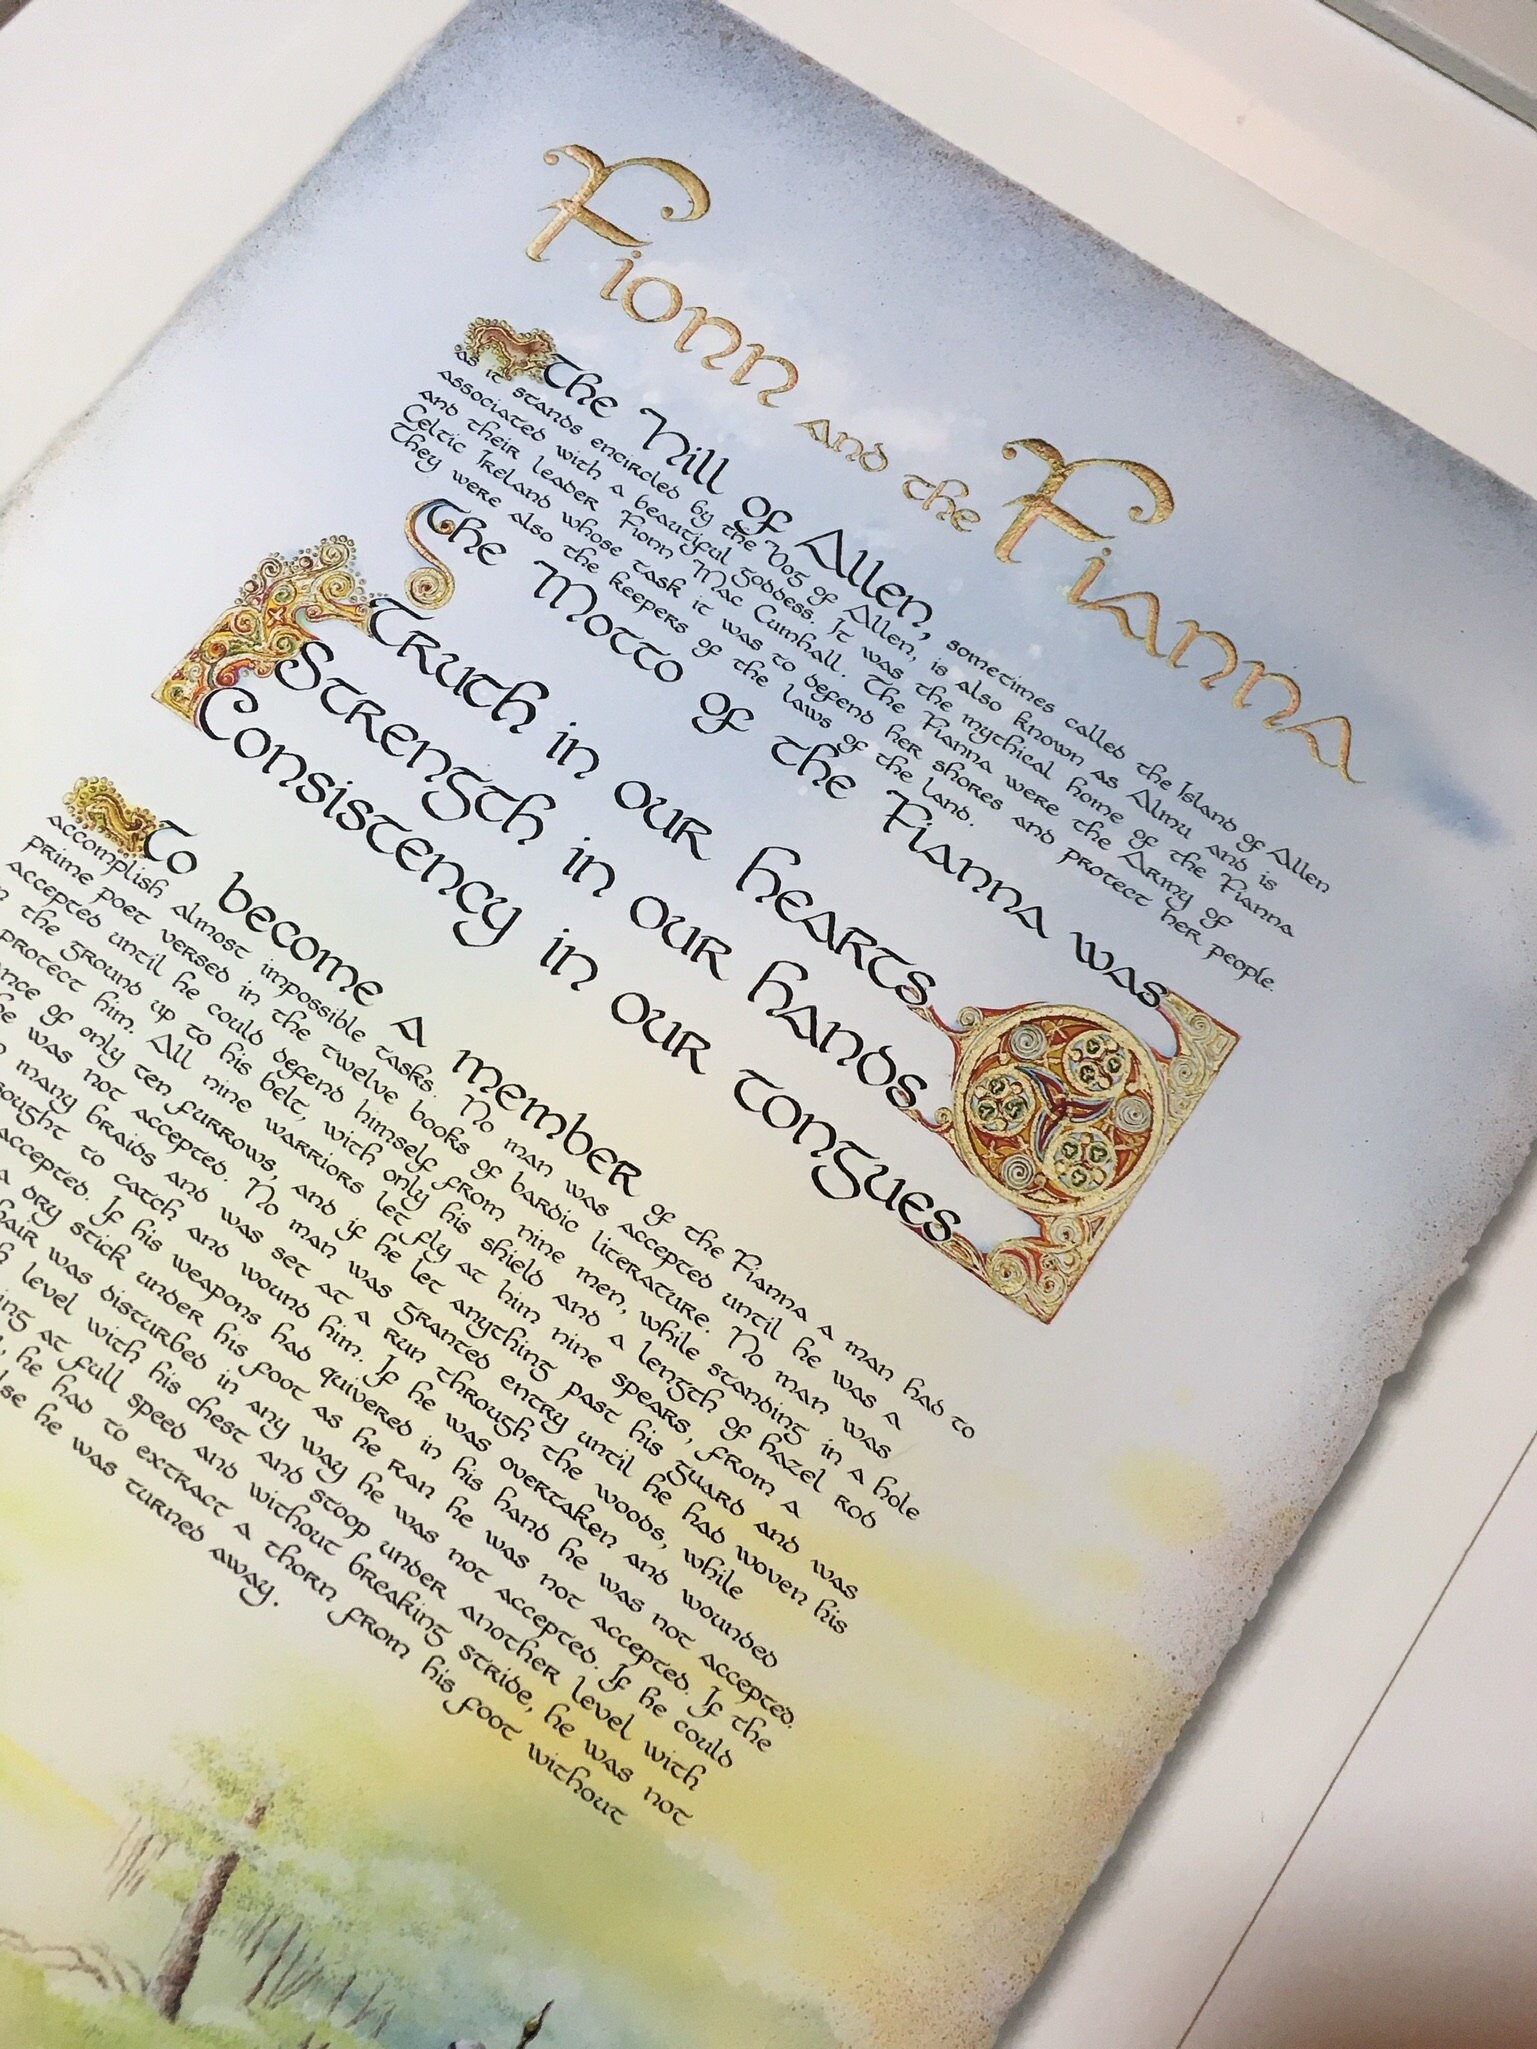 Fionn and the Fianna
The Hill of Allen, sometimes called the Island of Allen
as it stands encircled by the Bog of Allen, is also known as Almu and is
associated with a beautiful goddess. It was the mythical home of the Fianna
and their leader Fionn Mac Cumhall. The Fianna were the Army of
Celtic Ireland whose task it was to defend her shores and protect her people.
They were also the keepers of the laws of the land.
The Motto of the Fianna was
Truth in our hearts
Strength in our hands
Consistency in our tongues
To become a member of the Fianna a man had to
accomplish almost impossible tasks. No man was accepted until he was a
prime poet versed in the twelve books of bardic literature. No man was
accepted until he could defend himself from nine men, while standing in a hole
the ground up to his belt, with only his shield and a length of hazel rod
protect him. All nine warriors let fly at him nine spears, from a
of only ten furrows, and if he let anything past his guard and was
he was not accepted. No man was granted entry until he had woven his
many braids and was set at a run through the woods, while
to catch and wound him. If he was overtaken and wounded
accepted. If his weapons had quivered in his hand he was not accepted.
a dry stick under his foot as he ran he was not accepted. If the
hair was disturbed in any way he was not accepted. If he could
level with his chest and stoop under another level with
at full speed and without breaking stride, he was not
he had to extract a thorn from his foot without
he was turned away.